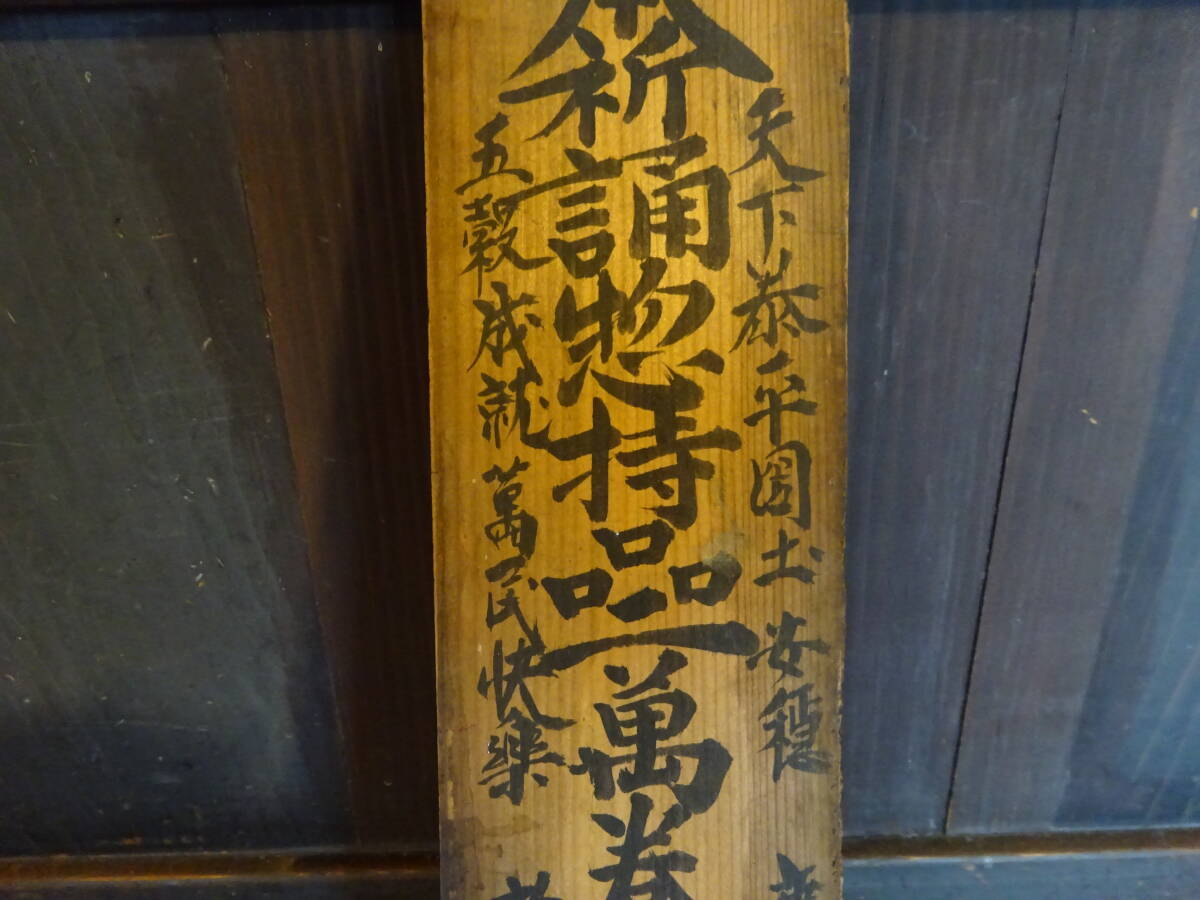 天下泰平国土安穏
奉祈誦惣持品一萬巻
五穀成就萬民快樂